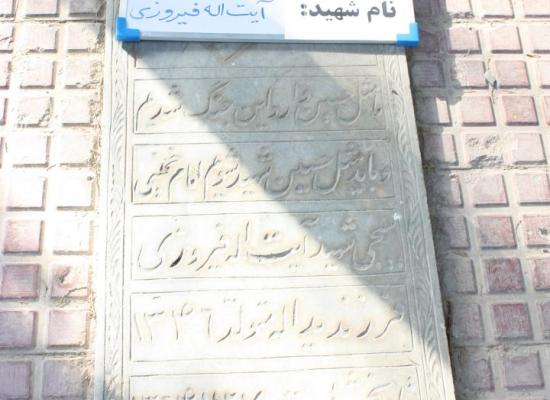 نام شهید: آیت اله فیروزی
ما مثل حسین وارد این جنگ شدیم
و باید مثل حسین شهید شویم امام خمینی
بسیجی شهید آیت اله فیروزی
فرزند یداله متولد ۱۳۴۶